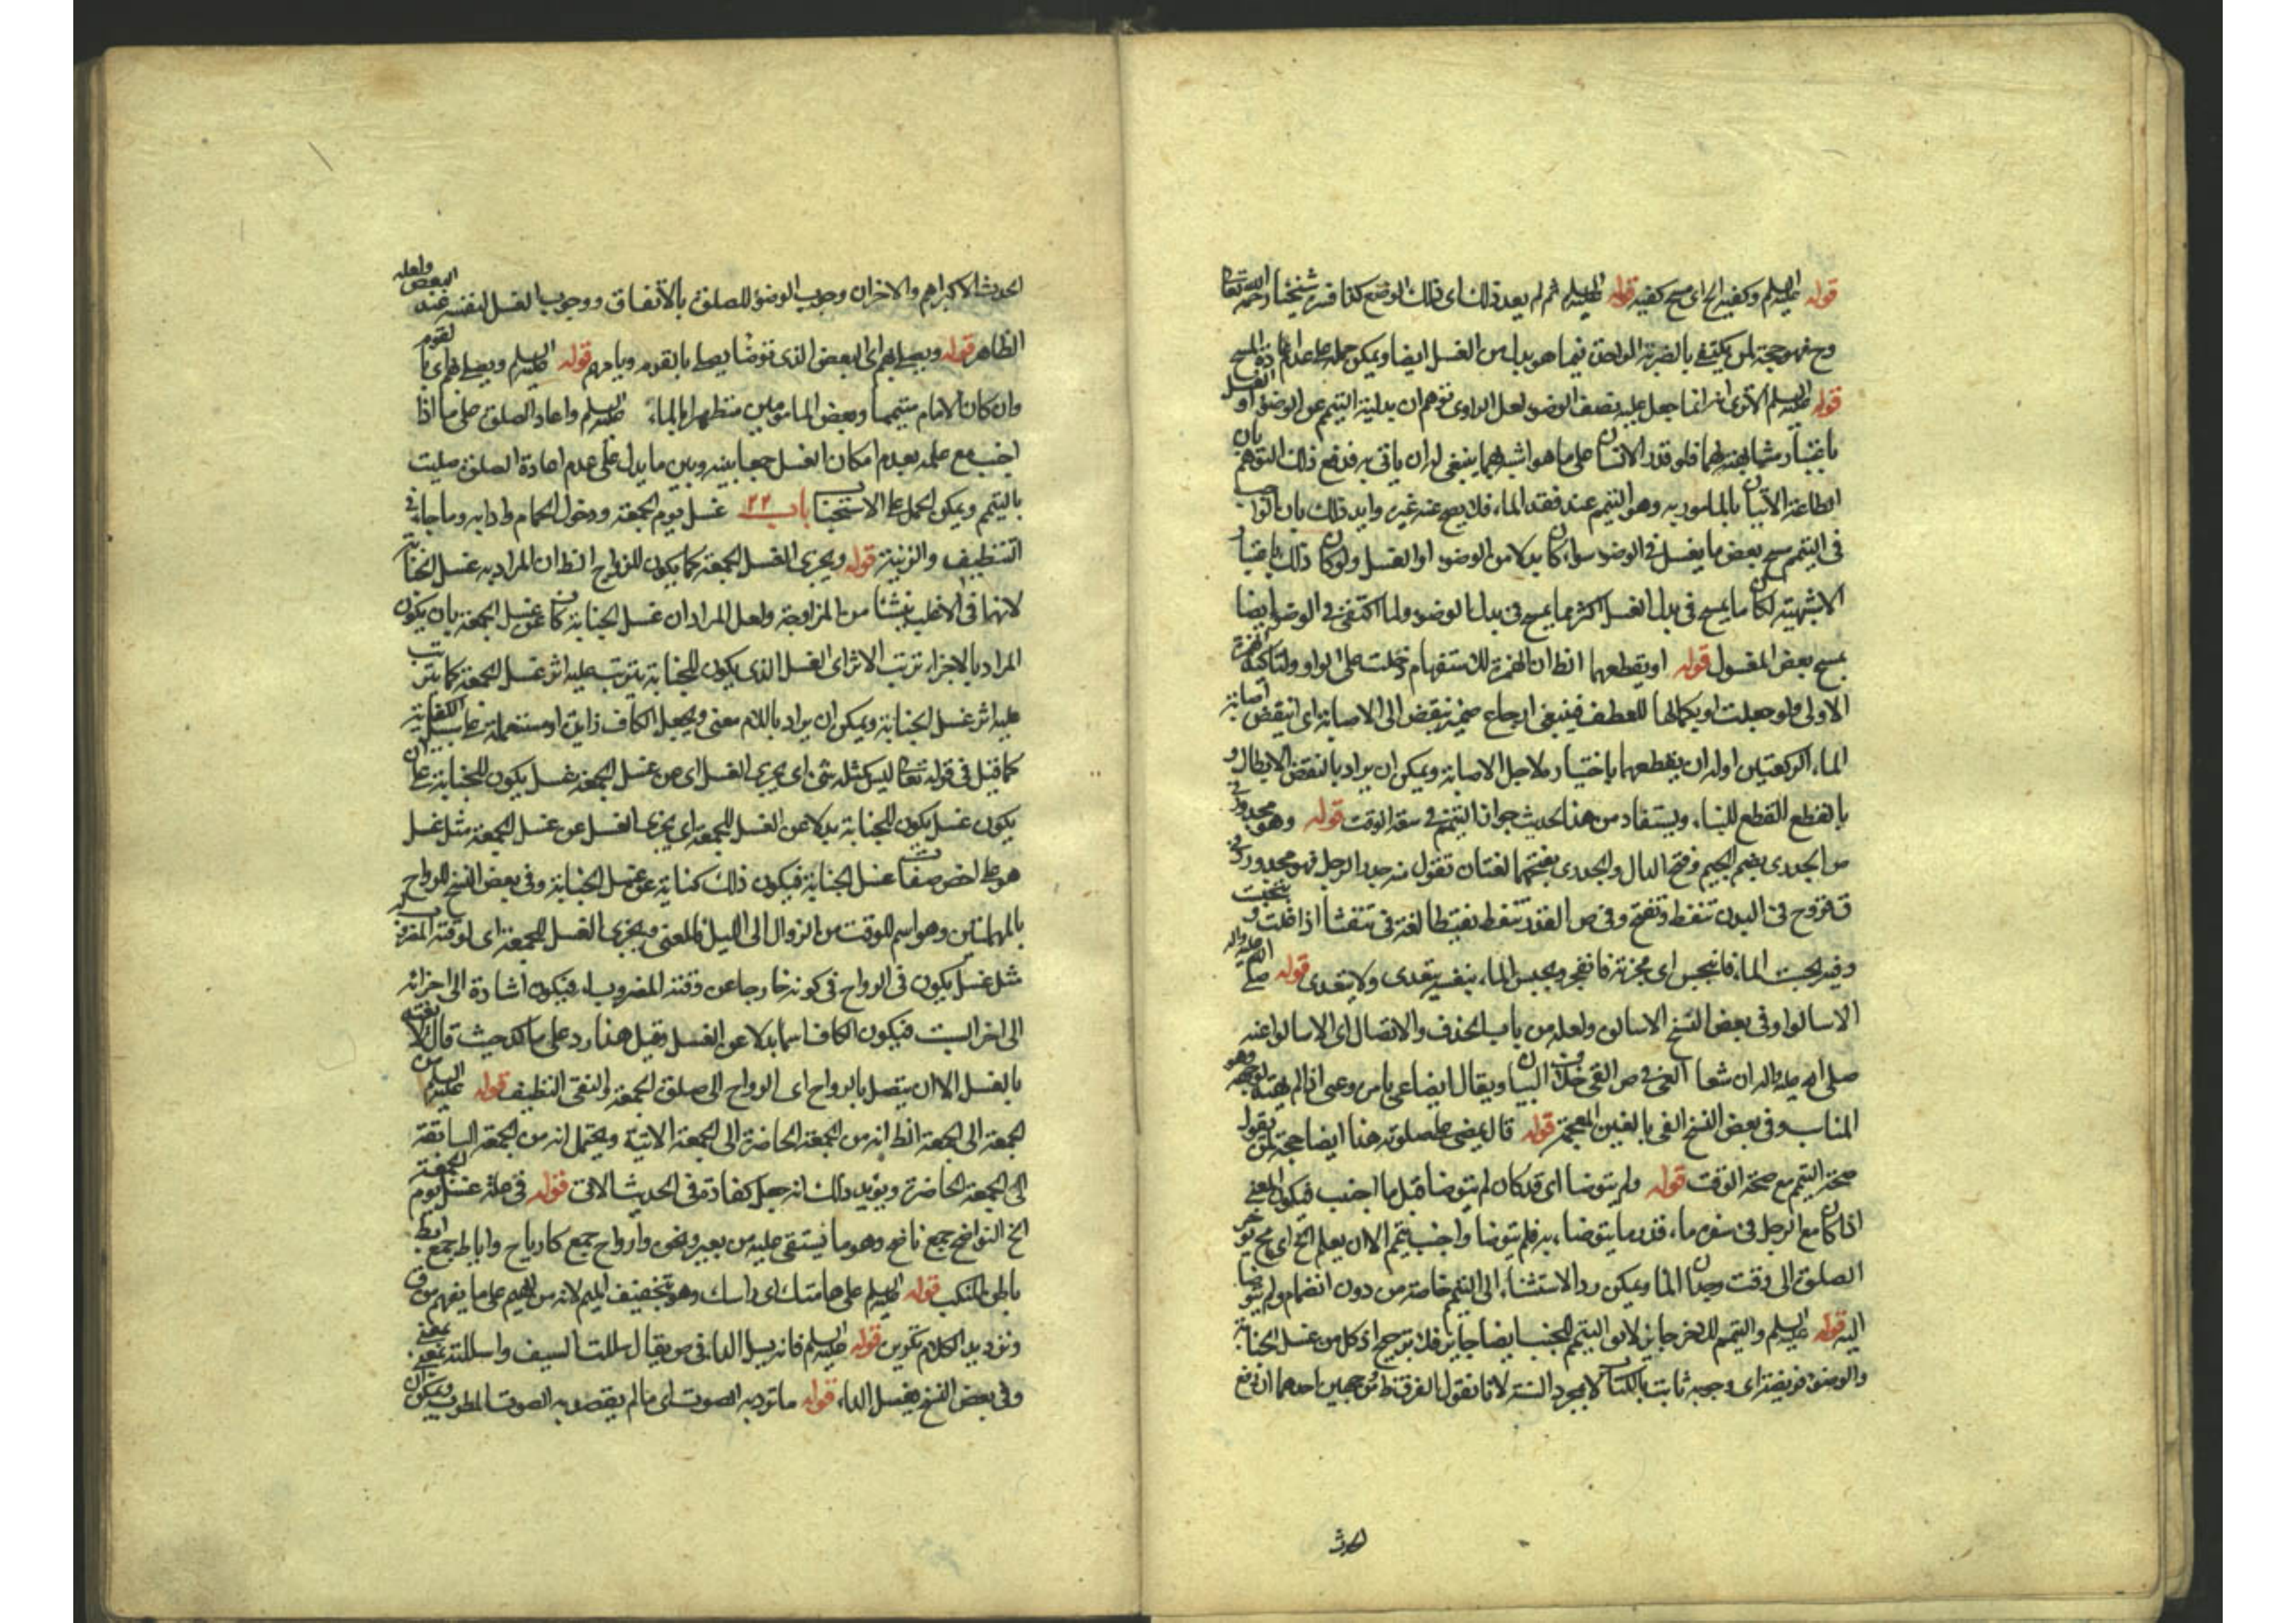 قوله عليه السلم وكفيه الخ اى مسح كفيه قوله عليه السلم ثم لم يعد ذلك اى ذلك الوضع كذا فسره شيخنا رحمه الله تعالى
وح فهو حجة لمن يكتفى بالضربة الواحدة فيما هو بدل من الغسل ايضا ويمكن حمله على عدم اعادة المسح
قوله عليه السلم الا ترى انه انما جعل عليه نصف الوضوء لعل الراوى توهم ان بدلية التيمم عن الوضوء او الغسل
باعتبار مشابهته لهما فلو قدر الانسان على ما هو اشبه بهما ينبغى له ان ياتى به فدفع ذلك التوهم بان
الطاعة الاتيان بالمامور به وهو التيمم عند فقد الماء فلا يصح عنه غيره وايد ذلك بان
فى التيمم مسح بعض ما يغسل فى الوضوء سواء كان بدلا من الوضوء او الغسل ولو كان ذلك باعتبار
الاشبهية لكان ما يمسح فى بدل الغسل اكثر مما يمسح فى بدل الوضوء ولما اكتفى فى الوضوء ايضا
بمسح بعض المغسول قوله او يقطعهما الظ ان الهمزة للاستفهام دخلت على الواو ولتاكيد الهمزة
الاولى ولو جعلت او بكمالها للعطف فينبغى ارجاع ضمير ينقض الى الاصابة اى اينقض اصابة
الماء الركعتين او له ان يقطعهما باختياره لاجل الاصابة ويمكن ان يراد بالنقض الابطال و
بالقطع القطع للبناء ويستفاد من هذا الحديث جواز التيمم فى سعة الوقت قوله وهو مجدور فى
ص الجدرى بضم الجيم وفتح الدال والجدرى بفتحهما لغتان تقول منه جدر الرجل فهو مجدور وفى
ق قروح فى البدن تنفط وتقيح وفى ص
وفيه بجست الماء فانبجس اى فجرته فانفجر وبجس الماء بنفسه يتعدى ولا يتعدى قوله صلى الله عليه واله
الا سالوا وفى بعض النسخ الا سالوه ولعله من باب الحذف والاتصال اى الا سالوا عنه
صلى الله عليه واله ان شفاء العى فى ص العى خلاف البيان ويقال ايضا عى بامره وعيى اذا لم يهتد لوجهه وهو
المناسب وفى بعض النسخ الغى بالغين المعجمة قوله قال يمضى على صلوته هذا ايضا حجة لمن يقول
صحة التيمم مع صحة الوقت قوله ولم يتوضا اى قد كان لم يتوضا قبل ما اجنب فيكون المعنى
اذا كان مع الرجل فى سفره ماء قدر ما يتوضا به فلم يتوضا واجنب يتمم الا ان يعلم الخ اى ح يؤخر
الصلوة الى وقت وجدان الماء ويمكن رد الاستثناء الى التيمم خاصة من دون انضمام ولم يتوضا
اليه قوله عليه السلم والتيمم للاخر جايز لا يق التيمم للجنب ايضا جايز فلا ترجيح اذ كل من غسل الجنابة
والوضوء فريضة اى وجوبه ثابت بالكتاب لا بمجرد السنة لانا نقول الفرق من وجهين احدهما ان رفع
الحدث الاكبر اهم والاخر ان وجوب الوضوء للصلوة بالاتفاق ووجوب الغسل لنفسه عند البعض ولعله
الظاهر قوله ويصلى بهم اى البعض الذى توضا يصلى بالقوم ويامهم قوله عليه السلم ويصلى بهم اى بالقوم
وان كان الامام متيمما وبعض المامومين متطهرا بالماء عليه السلم واعاد الصلوة حمل على ما اذا
اجنب مع علمه بعدم امكان الغسل جمعا بينه وبين ما يدل على عدم اعادة الصلوة صليت
بالتيمم ويمكن الحمل على الاستحباب باب ٢٢ غسل يوم الجمعة ودخول الحمام وادابه وما جاء فى
التنظيف والزينة قوله ويجزى الغسل للجمعة كما يكون للزواج الظ ان المراد به غسل الجنابة
لانها فى الاغلب ينشا من المزاوجة ولعل المراد ان غسل الجنابة كاف عن غسل الجمعة بان يكون
المراد بالاجزاء ترتب الاثر اى الغسل الذى يكون للجنابة يترتب عليه اثر غسل الجمعة كما يترتب
عليه اثر غسل الجنابة ويمكن ان يراد باللام معنى ويجعل الكاف زايدة او مستعملة على سبيل الكناية
كما قيل فى قوله تعالى ليس كمثله شئ اى يجزى الغسل اى من غسل الجمعة غسل يكون للجنابة على ان
يكون غسل يكون للجنابة بدلا عن الغسل للجمعة اى يجزى الغسل عن غسل الجمعة مثل غسل
هو على اخص صفات غسل الجنابة فيكون ذلك كناية عن غسل الجنابة وفى بعض النسخ للرواح
بالمهملتين وهو اسم للوقت من الزوال الى الليل فالمعنى ويجزى الغسل للجمعة اى لوقته المضروب له
مثل غسل يكون فى الرواح فى كونه خارجا عن وقته المضروب له فيكون اشارة الى اجزائه
الى اخر السبت فيكون الكاف اسما بدلا عن الغسل وقيل هذا رد على مالك حيث قال لا يعتد
بالغسل الا ان يتصل بالرواح اى الرواح الى صلوة الجمعة والنقى النظيف قوله عليه السلم من
الجمعة الى الجمعة الظ انه من الجمعة الحاضرة الى الجمعة الاتية ويحتمل انه من الجمعة السابقة
الى الجمعة الحاضرة ويؤيد ذلك انه جعل كفارة فى الحديث الاتى قوله فى علة غسل يوم الجمعة
الخ النواضح جمع ناضح وهو ما يستقى عليه من بعير ونحوه وارواح جمع كارياح واباط جمع ابط
باطن المنكب قوله عليه السلم على هامتك اى راسك وهو بتخفيف الميم لانه من الهيم على ما يفهم من ق
قوله عليه السلم فانه يسل الداء فى ص يقال سللت السيف واسللته بمعنى
وفى بعض النسخ يغسل الداء قوله ما تؤديه الصوت اى ما لم يقصد به الصوت المطرب ويمكن ان